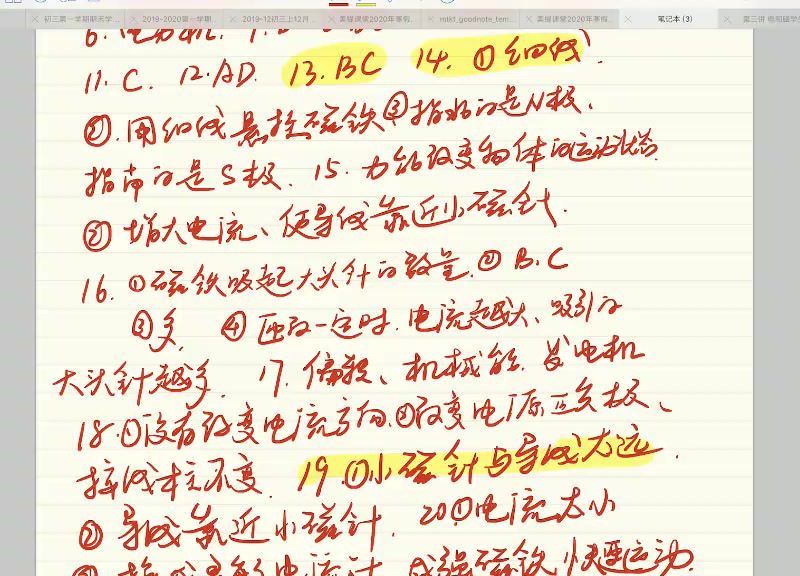 初三第一学期期末学...
2019-2020第一学期...
2019-12初三上12月...
美耀课堂2020年寒假...
mtkt_goodnote_tem...
美耀课堂2020年寒假...
笔记本 (3)
第三讲 电和磁学生
11. C. 12. AD. 13. BC 14. ①细线.
②. 用细线悬挂磁铁③指北的是N极、
指南的是S极. 15. 力能改变物体的运动状态
② 增大电流、使导线靠近小磁针.
16. ①磁铁吸起大头针的数量. ② B. C
③多. ④ 匝数一定时. 电流越大、吸引的
大头针越多. 17. 偏转、机械能. 发电机
18. ①没有改变电流方向. ②改变电源正负极、
接线柱不变. 19 ①小磁针与导线太远.
② 导线靠近小磁针. 20①电流大小
成强磁铁 快速运动.